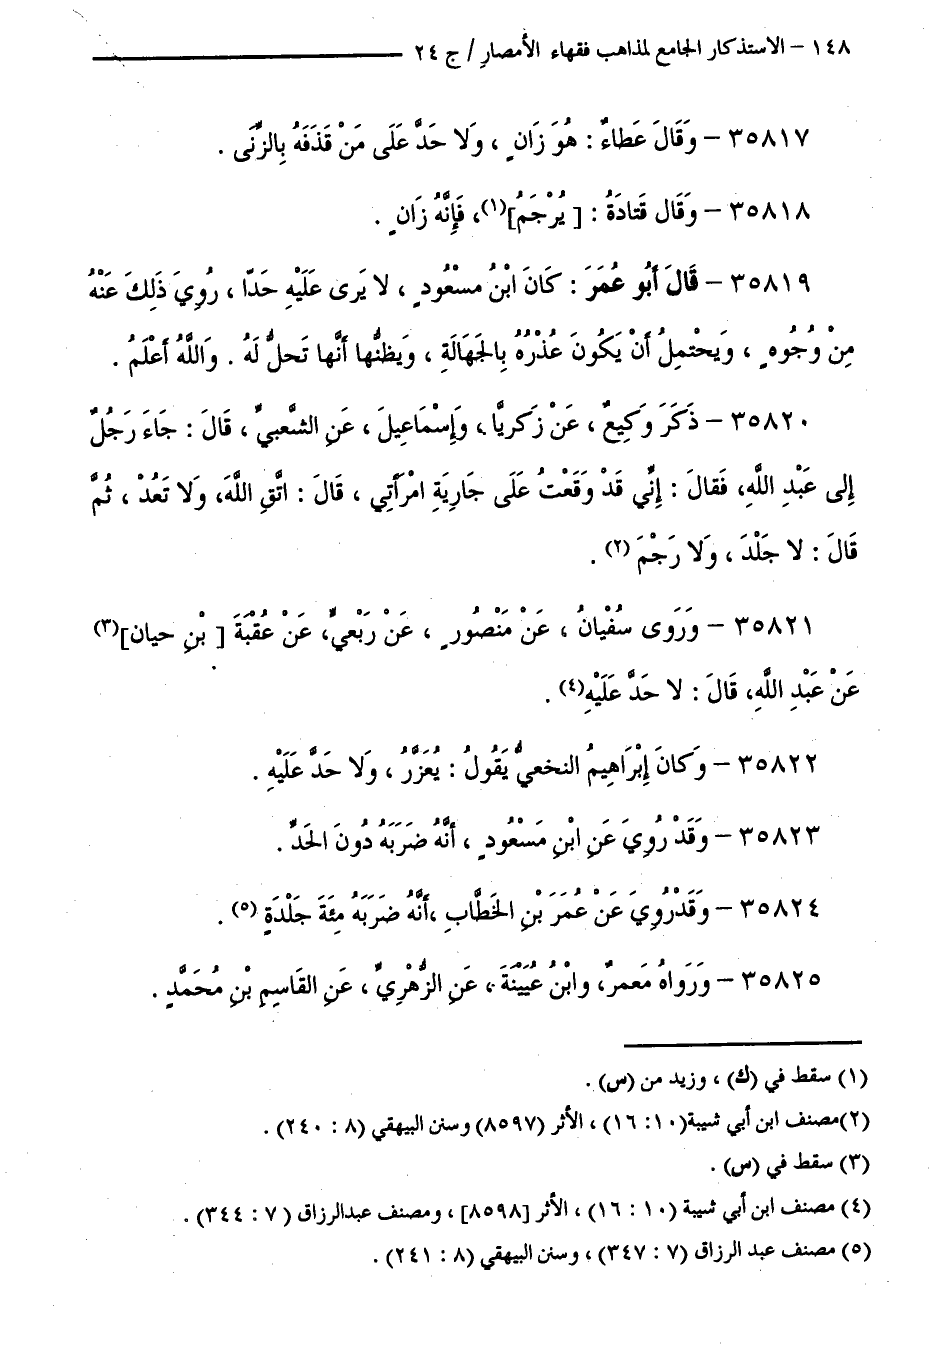 ١٤٨ – الاستذكار الجامع لمذاهب فقهاء الأمصارِ / ج ٢٤
٣٥٨١٧ – وَقَالَ عَطاءٌ : هُوَ زَانٍ ، وَلا حَدَّ عَلَى مَنْ قَذَفَهُ بِالزِّنَى .
٣٥٨١٨ – وَقَال قَتادَةُ : [ يُرْجَمُ](١)، فَإِنَّهُ زَانٍ .
٣٥٨١٩ – قَالَ أَبُو عُمَرَ : كَانَ ابْنُ مسْعُودٍ ، لا يَرى عَلَيْهِ حَدّا ، رُوِيَ ذَلِكَ عَنْهُ
مِنْ وُجُوهٍ ، وَيحْتمِلُ أَنْ يَكُونَ عُذْرُهُ بِالجَهَالَةِ ، وَيظنُّها أَنَّها تَحلُّ لَهُ . وَاللَّهُ أَعْلَمُ .
٣٥٨٢٠ – ذَكَرَ وَكِيعٌ ، عَنْ زكَريَّا ، وَإِسْمَاعِيلَ ، عَنِ الشَّعبيِّ ، قَالَ : جَاءَ رَجُلٌ
إِلى عَبْدِ اللَّهِ، فَقالَ : إِنِّي قَدْ وَقَعْتُ عَلَى جَارِيَةِ امْرَأَتِي ، قَالَ : اتَّقِ اللَّهَ، وَلا تَعُدْ ، ثُمَّ
قَالَ : لا جَلْدَ ، وَلا رَجْمَ (٢) .
٣٥٨٢١ – وَرَوى سُفْيانُ ، عَنْ مَنْصُورٍ ، عَنْ رَبْعيٍّ، عَنْ عُقْبَةَ [ بْنِ حيان](٣)
عَنْ عَبْدِ اللَّهِ، قَالَ : لا حَدَّ عَلَيْهِ(٤) .
٣٥٨٢٢ – وَكانَ إِبْرَاهِيمُ النخعيُّ يَقُولُ : يُعَزَّرُ ، وَلا حَدَّ عَلَيْهِ .
٣٥٨٢٣ – وَقَدْ رُوِيَ عَنِ ابْنِ مَسْعُودٍ ، أَنَّهُ ضَرَبَهُ دُونَ الحَدِّ .
٣٥٨٢٤ – وَقَدْرُوِيَ عَنْ عُمَرَ بْنِ الخَطَّابِ ،أَنَّهُ ضَرَبَهُ مِئَةَ جَلْدَةٍ (٥) .
٣٥٨٢٥ – وَرَوَاهُ مَعمرٌ، وابْنُ عُيَيْنَةَ ، عَنِ الزُّهْرِيِّ ، عَنِ القَاسِمِ بْنِ مُحَمَّدٍ .
(١) سقط في (ك) ، وزيد من (س) .
(٢)مصنف ابن أبي شيبة(١٠: ١٦) ، الأثر (٨٥٩٧) وسنن البيهقي (٨ : ٢٤٠) .
(٣) سقط في (س) .
(٤) مصنف ابن أبي شيبة (١٠ : ١٦) ، الأثر [٨٥٩٨] ، ومصنف عبدالرزاق ( ٧ : ٣٤٤) .
(٥) مصنف عبد الرزاق (٧ : ٣٤٧) ، وسنن البيهقي (٨ : ٢٤١) .